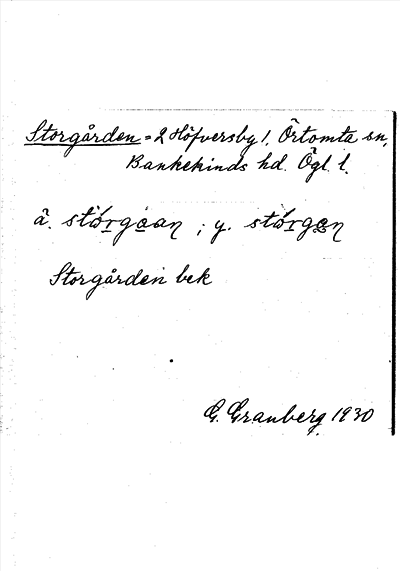 Storgården = 2 Höfversby 1, Örtomta sn,
Bankekinds hd. Ögl l.
ä. stórgaan ; y. stórgen
Storgården bek
G. Granberg 1930